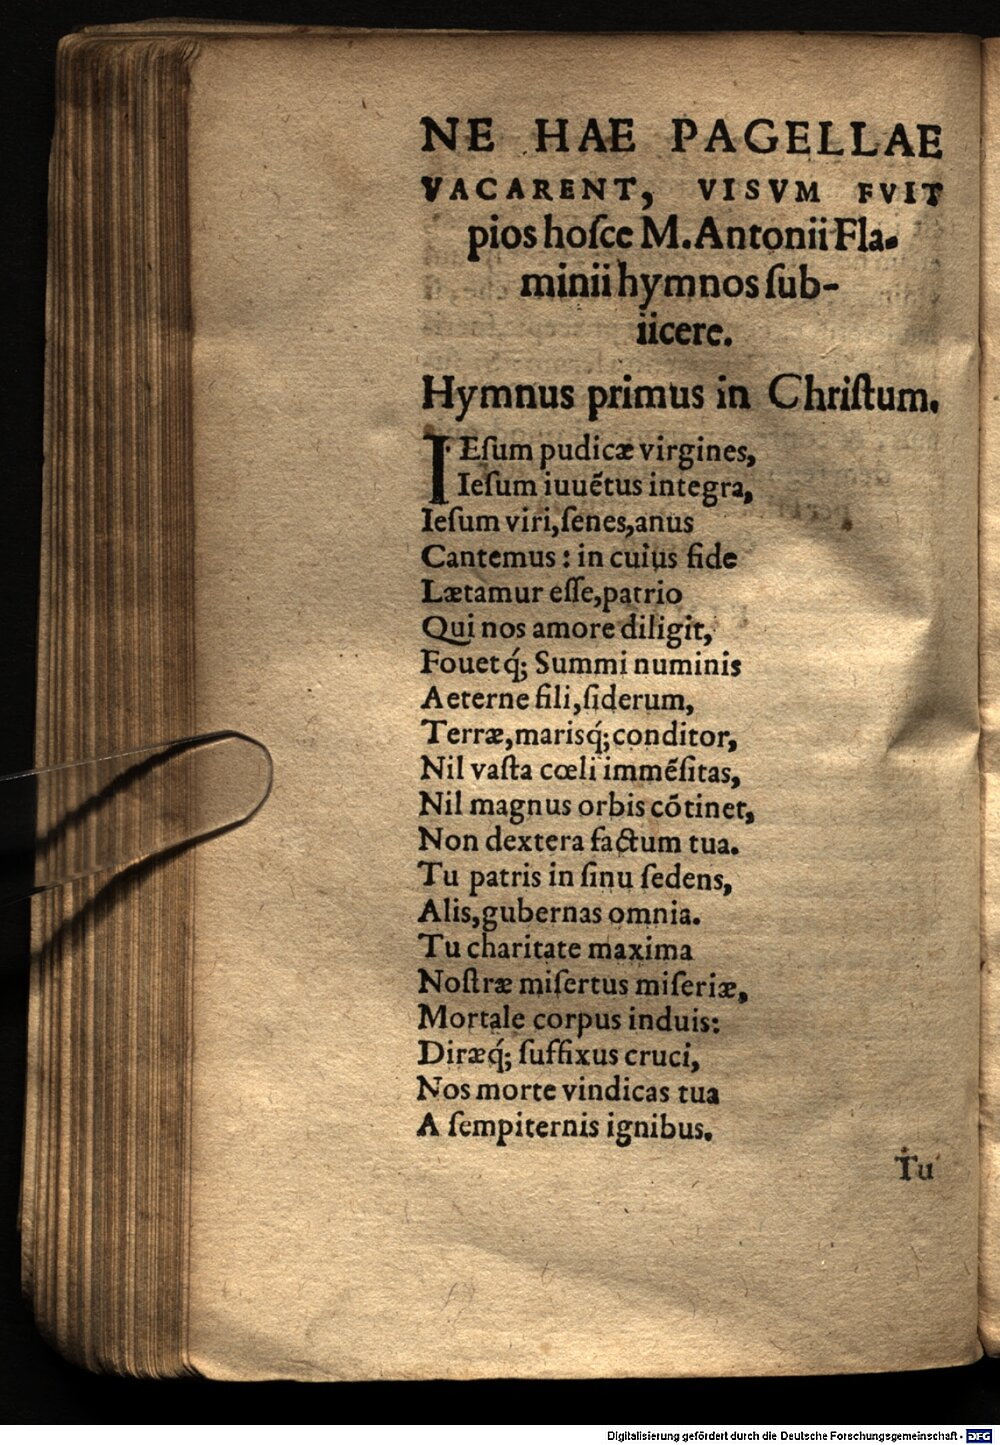 NE HAE PAGELLAE
VACARENT, VISVM FVIT
pios hoſce M. Antonii Fla-
minii hymnos ſub-
iicere.
Hymnus primus in Chriſtum.
IEſum pudicæ virgines,
Ieſum iuuẽtus integra,
Ieſum viri, ſenes, anus
Cantemus: in cuius fide
Lætamur eſſe, patrio
Qui nos amore diligit,
Fouetq́; Summi numinis
Aeterne fili, ſiderum,
Terræ, marisq́; conditor,
Nil vaſta cœli immẽſitas,
Nil magnus orbis cõtinet,
Non dextera factum tua.
Tu patris in ſinu ſedens,
Alis, gubernas omnia.
Tu charitate maxima
Noſtræ miſertus miſeriæ,
Mortale corpus induis:
Diræq́; ſuffixus cruci,
Nos morte vindicas tua
A ſempiternis ignibus.
Tu
Digitalisierung gefördert durch die Deutsche Forschungsgemeinschaft - DFG